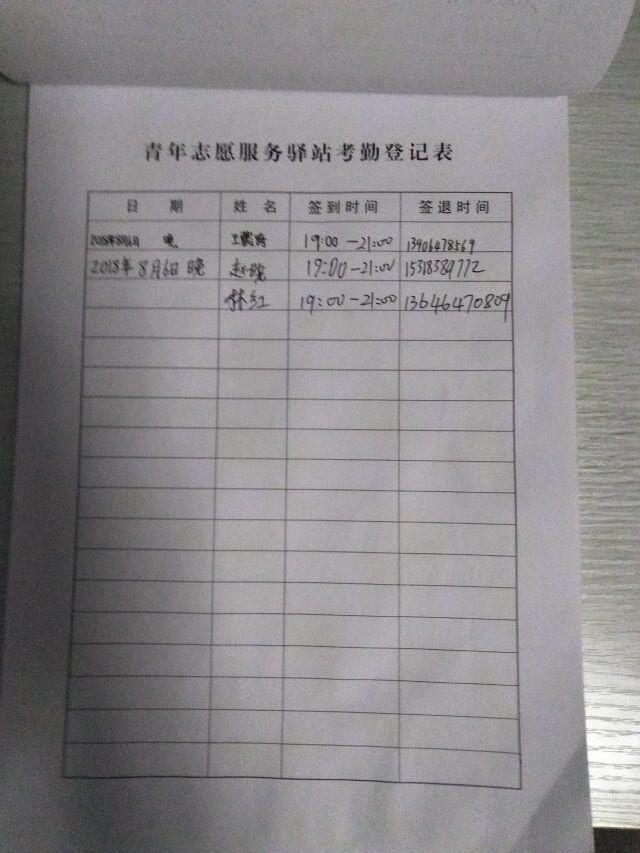 青年志愿服务驿站考勤登记表
日 期 姓 名 签到时间 签退时间
2018年8月6日 晚 19:00-21:00 13906478569
2018年8月6日晚 赵晓 19:00-21:00 15318389772
林红 19:00-21:00 13646470809